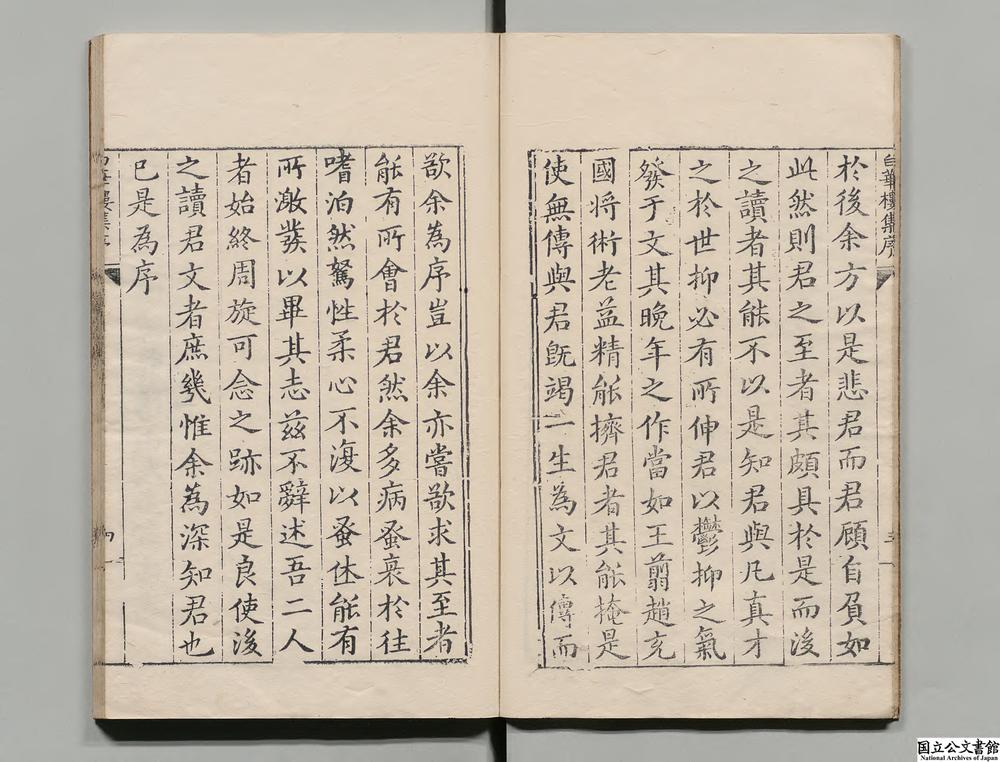 白華樓集序
於後余方以是悲君而君顧自負如
此然則君之至者其頗具於是而後
之讀者其能不以是知君與凡真才
之於世抑必有所伸君以鬱抑之氣
發于文其晚年之作當如王翦趙充
國將術老益精能擠君者其能掩是
使無傳與君既竭一生為文以傳而
欲余為序豈以余亦嘗欲求其至者
能有所會於君然余多病蚤衰於往
嗜泊然駑性柔心不復以蚤休能有
所激發以畢其志茲不辭述吾二人
者始終周旋可念之跡如是良使後
之讀君文者庶幾惟余為深知君也
已是為序
樓集
国立公文書館
National Archives of Japan